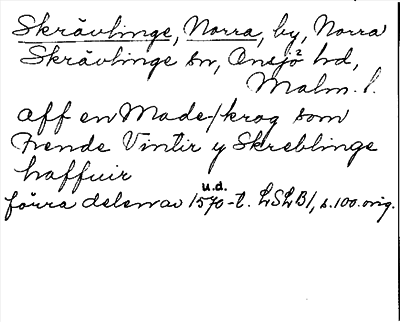 Skrävlinge, Norra, by, Norra
Skrävlinge sn, Onsjö hd,
Malm. l.
aff en Made/krog som
Frende Vintir y Skreblinge
haffuir
förra delen av 1570-t. LSLB1, s.100. orig.
u.d.